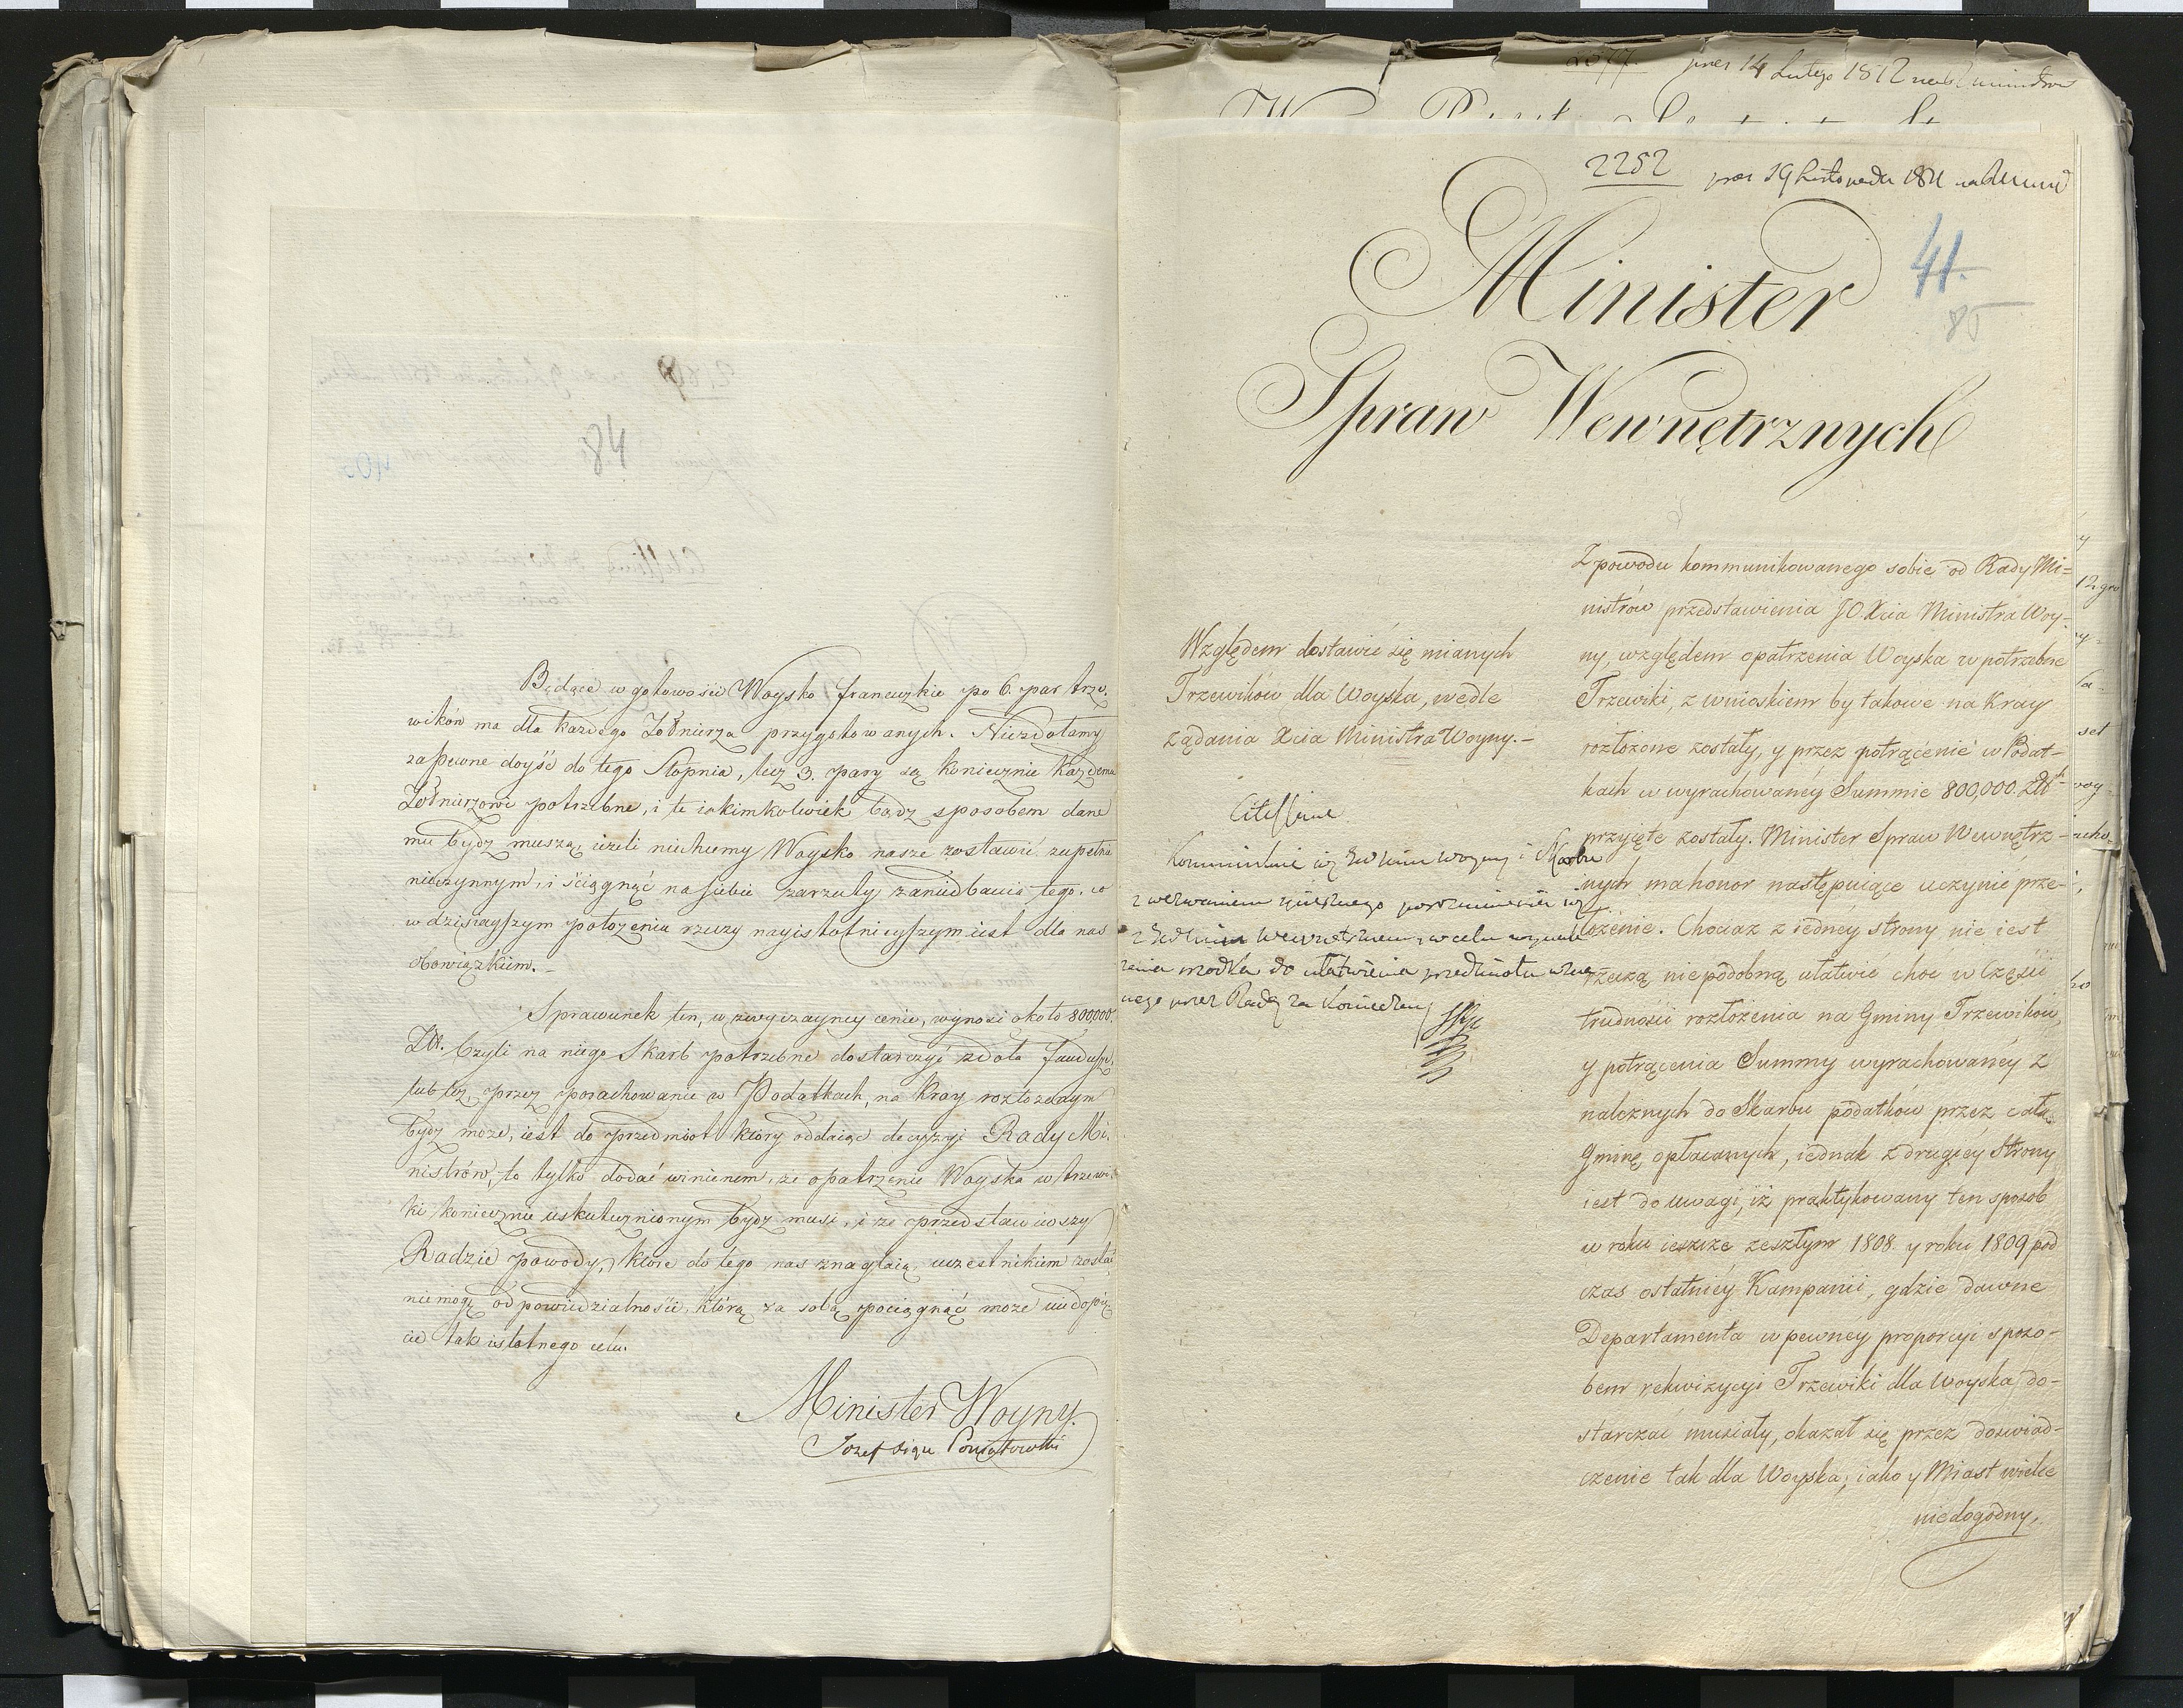 84
Będące w gotowości Woysko francuzkie po 6. par trze„
wików ma dla każdego Żołnierza przygotowanych. Niezdołamy
zapewne doyść do tego Stopnia, lecz 3. pary są koniecznie każdemu
Żołnierzowi potrzebne, i te iakimkolwiek bądz sposobem dane
mu bydz muszą, ieżeli niechcemy Woysko nasze zostawić zupełnie
nieczynnym, i ściągnąć na siebie zarzuty zaniedbania tego, co
w dzisieyszym położeniu rzeczy nayistotnieyszym iest dla nas
obowiązkiem._
Sprawunek ten, w zwyczayney cenie, wynosi około 800,000.
Złł. Czyli na niego Skarb potrzebne dostarczyć zdoła fundusze,
lub też, przez porachowanie w Podatkach, na Kray rozłożonym
bydz może, iest to przedmiot który oddaiąc decyzyi Rady Mi„
nistrów, to tylko dodać winienem, że opatrzenie Woyska w trzewi„
ki koniecznie uskutecznionym bydz musi, i że przedstawiwszy
Radzie powody, które do tego nas znaglaią, uczestnikiem zostać
niemogę odpowiedzialności, którą za sobą pociągnąć może niedopię„
cie tak istotnego celu.
Minister Woyny.
Jozef Xiąże Poniatowski
14 Lutego 1812
2252 prez 19 Listopada 1811
41.
85
Minister
Spraw Wewnętrznych
Względem dostawić się mianych
Trzewików dla Woyska, wedle
żądania Xcia Ministra Woyny.–
Citissime
z wezwaniem
uega przez Radę za konieczny
Z powodu kommunikowanego sobie od Rady Mi=
nistrów przedstawienia JO Xcia Ministra Woy-
ny, względem opatrzenia Woyska w potrzebne
Trzewiki, z wnioskiem by takowe na Kray
rozłożone zostały, y przez potrącenie w Podat-
kach w wyrachowanéy Summie 800,000. Złł
przyięte zostały. Minister Spraw Wewnętrz-
nych ma honor następuiące uczynić prze-
łożenie. Chociaż z iednéy strony nie iest
rzeczą niepodobną ułatwić choć w Części
trudności rozłożenia na Gminy Trzewików,
y potrącenia Summy wyrachowanéy z
należnych do Skarbu podatków przez całą
Gminę opłacanych, iednak z drugiéy Strony
iest do uwagi, iż praktykowany ten sposob
w roku ieszcze zeszłym 1808. y roku 1809 pod
czas ostatniéy Kampanii, gdzie dawne
Departamenta w pewnéy proporcyi sposo-
bem rekwizycyi Trzewiki dla Woyska do-
starczać musiały, okazał się przez doświad-
czenie tak dla Woyska, iako y Miast wielce
niedogodny,